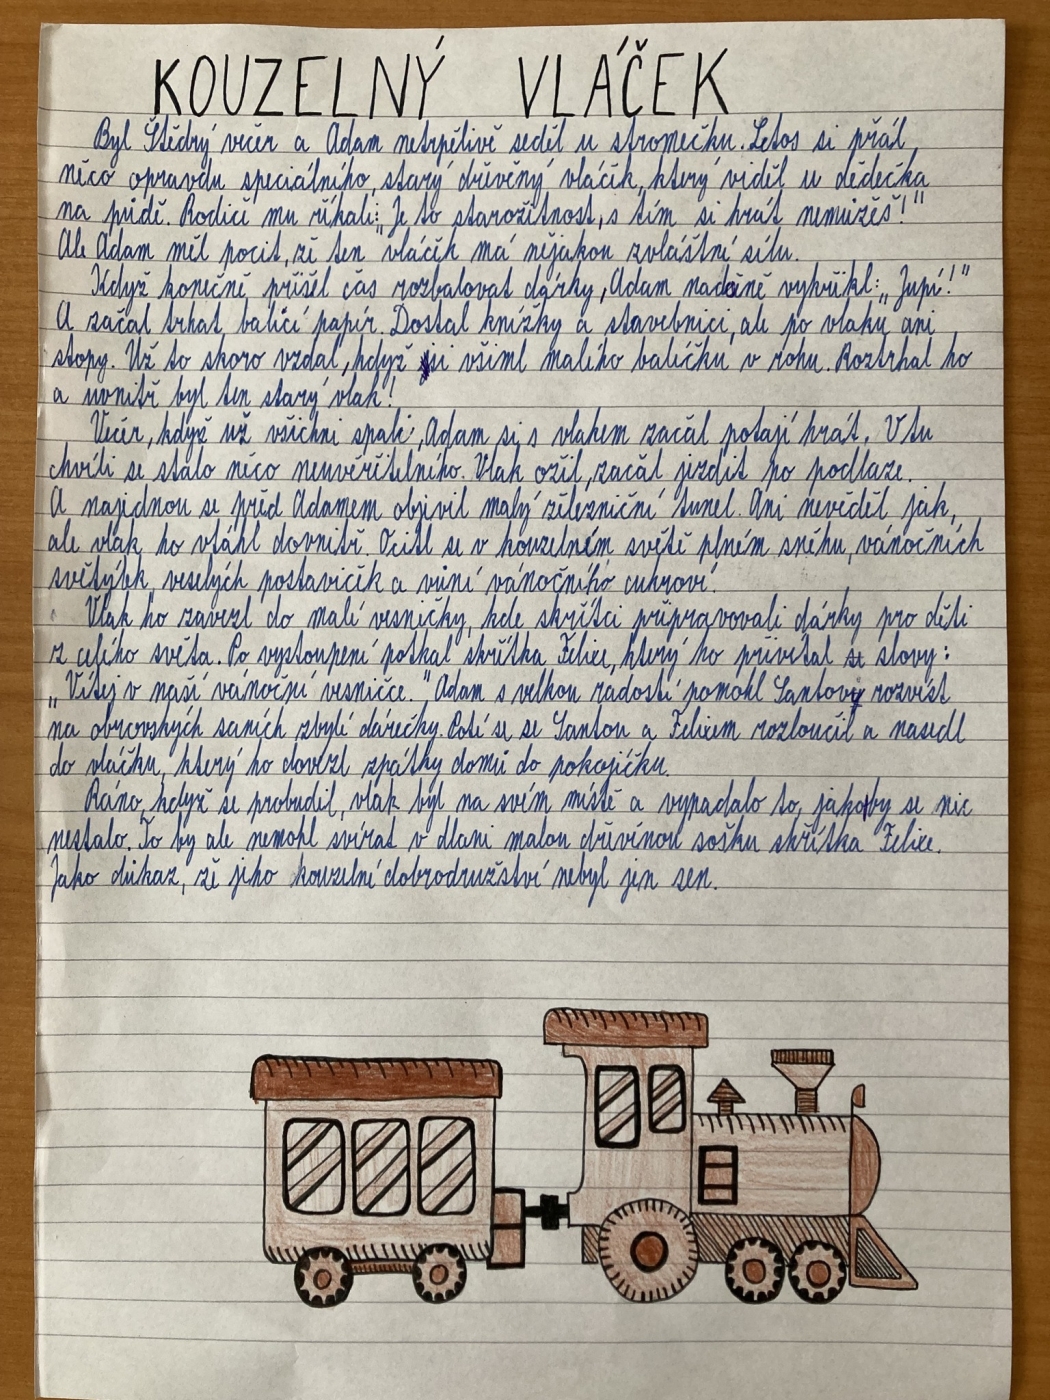 KOUZELNÝ VLÁČEK
Byl Štědrý večer a Adam netrpělivě seděl u stromečku. Letos si přál
něco opravdu speciálního, starý dřevěný vláček, který viděl u dědečka
na půdě. Rodiče mu říkali: „Je to starožitnost, s tím si hrát nemůžeš!"
Ale Adam měl pocit, že ten vláček má nějakou zvláštní sílu.
Když konečně přišel čas rozbalovat dárky, Adam nadšeně vykřikl: „Jupí!"
A začal trhat balicí papír. Dostal knížky a stavebnici, ale po vlaku ani
stopy. Už to skoro vzdal, když si všiml malého balíčku v rohu. Roztrhal ho
a uvnitř byl ten starý vlak!
Večer, když už všichni spali, Adam si s vlakem začal potají hrát. V tu
chvíli se stalo něco neuvěřitelného. Vlak ožil, začal jezdit po podlaze.
A najednou se před Adamem objevil malý železniční tunel. Ani nevěděl jak,
ale vlak ho vtáhl dovnitř. Ocitl se v kouzelném světě plném sněhu, vánočních
světýlek, veselých postaviček a vůní vánočního cukroví.
Vlak ho zavezl do malé vesničky, kde skřítci připravovali dárky pro děti
z celého světa. Po vystoupení potkal skřítka Felixe, který ho přivítal se slovy:
„Vítej v naší vánoční vesničce." Adam s velkou radostí pomohl Santovi rozvést
na obrovských saních zbylé dárečky. Poté se se Santou a Felixem rozloučil a nasedl
do vláčku, který ho dovezl zpátky domů do pokojíčku.
Ráno, když se probudil, vlak byl na svém místě a vypadalo to, jakoby se nic
nestalo. To by ale nemohl svírat v dlani malou dřevěnou sošku skřítka Felixe.
Jako důkaz, že jeho kouzelné dobrodružství nebyl jen sen.